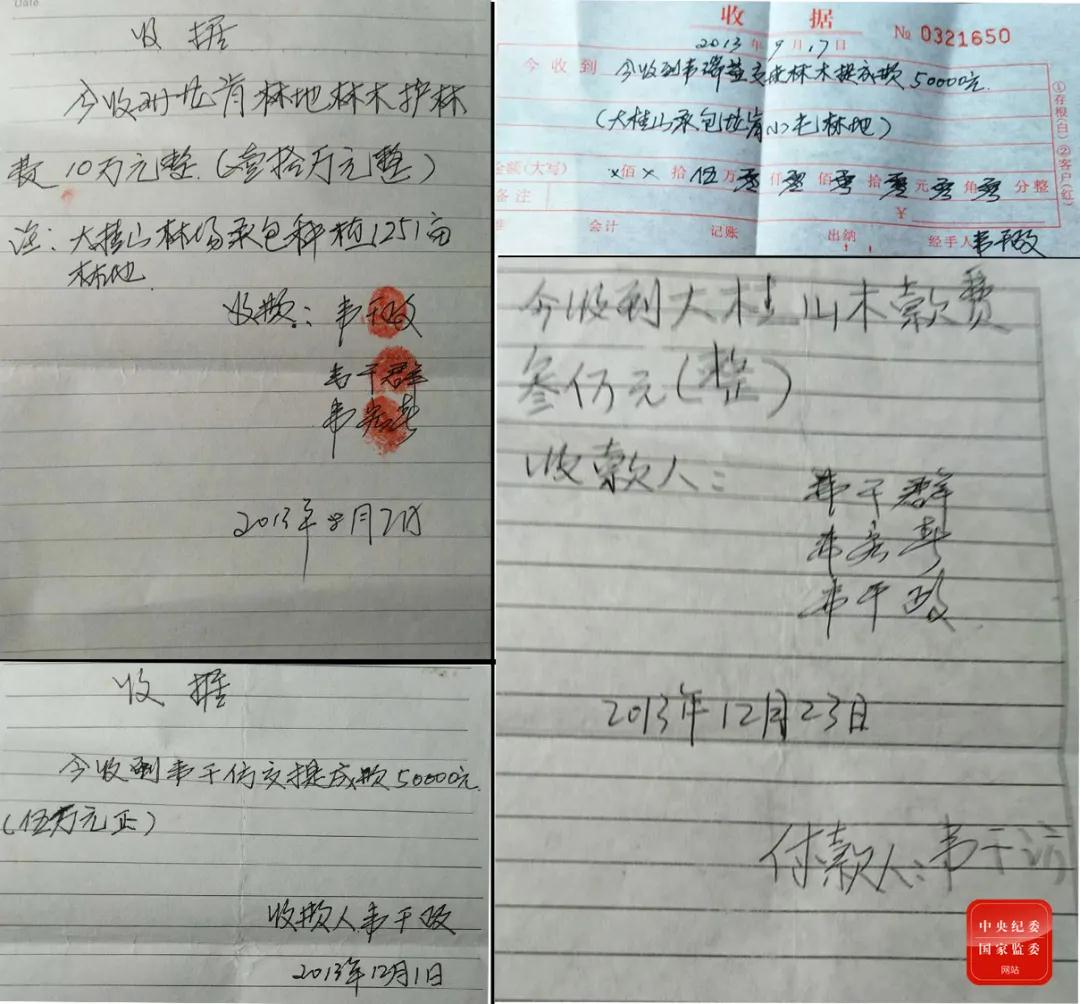 Date
收 据
今收到岜肯林地林木护林
费10万元整.(壹拾万元整)
注:大桂山林场承包种植1251亩
林地.
收款:韦干政
韦干群
韦宏寿
2013年8月2日
收 据
№ 0321650
2013年9月17日
今收到 今收到韦瑞益交来林木提成款50000元.
(大桂山承包岜肯小毛林地)
金额(大写) ×佰×拾伍万零仟零佰零拾零元零角零分整
备注
¥
会计 记账 出纳 经手人 韦干政
①存根(白)②客户(红)
今收到大桂山木款费
叁仟元(整)
收款人:
韦干群
韦宏寿
韦干政
2013年12月23日
付款人:韦干访
收 据
今收到韦干访交提成款50000元.
(伍万元正)
收款人韦干政
2013年12月1日
中央纪委
国家监委
网站